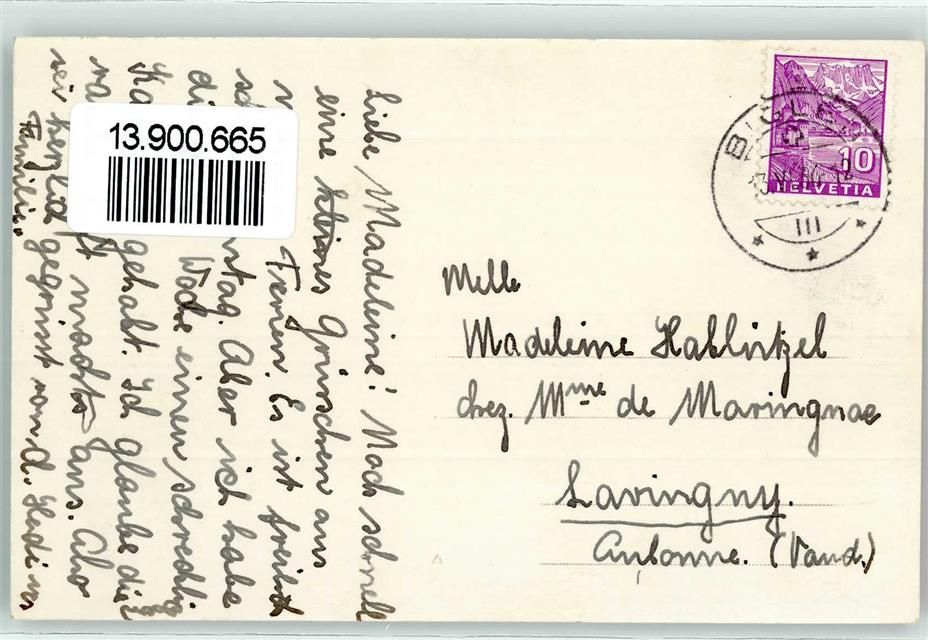 Liebe Madeleine! Noch schnell
eine kleines Grüsschen aus
Ferien. Es ist
tag. Aber ich habe
di Woche einen schreckli
Ka gehabt. Ich glaube die
macht aus. Also
sei herzlich gegrüsst von d. Hedi u.
Familie.
13.900.665
BIGLEN
10
HELVETIA
III
Melle
Madeleine Hablützel
chez. Mme de Maringnac
Lavingny.
Aubonne. (Vaud.)